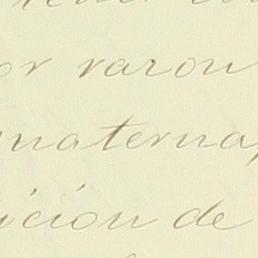 or razon
materna,
ición de